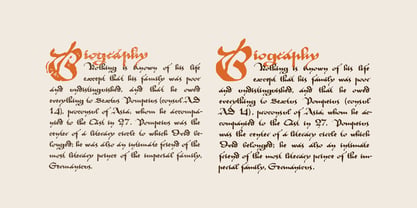 Biography
Nothing is known of his life
except that his family was poor
and undistinguished, and that he owed
everything to Sextus Pompeius (consul AD
14), proconsul of Asia, whom he accom-
panied to the East in 27. Pompeius was the
center of a literary circle to which Ovid
belonged; he was also an intimate friend of
the most literary prince of the imperial family,
Germanicus.
Biography
Nothing is known of his life
except that his family was poor
and undistinguished, and that he owed
everything to Sextus Pompeius (consul AD
14), proconsul of Asia, whom he ac-
companied to the East in 27. Pompeius
was the center of a literary circle to which
Ovid belonged; he was also an intimate
friend of the most literary prince of the im-
perial family, Germanicus.